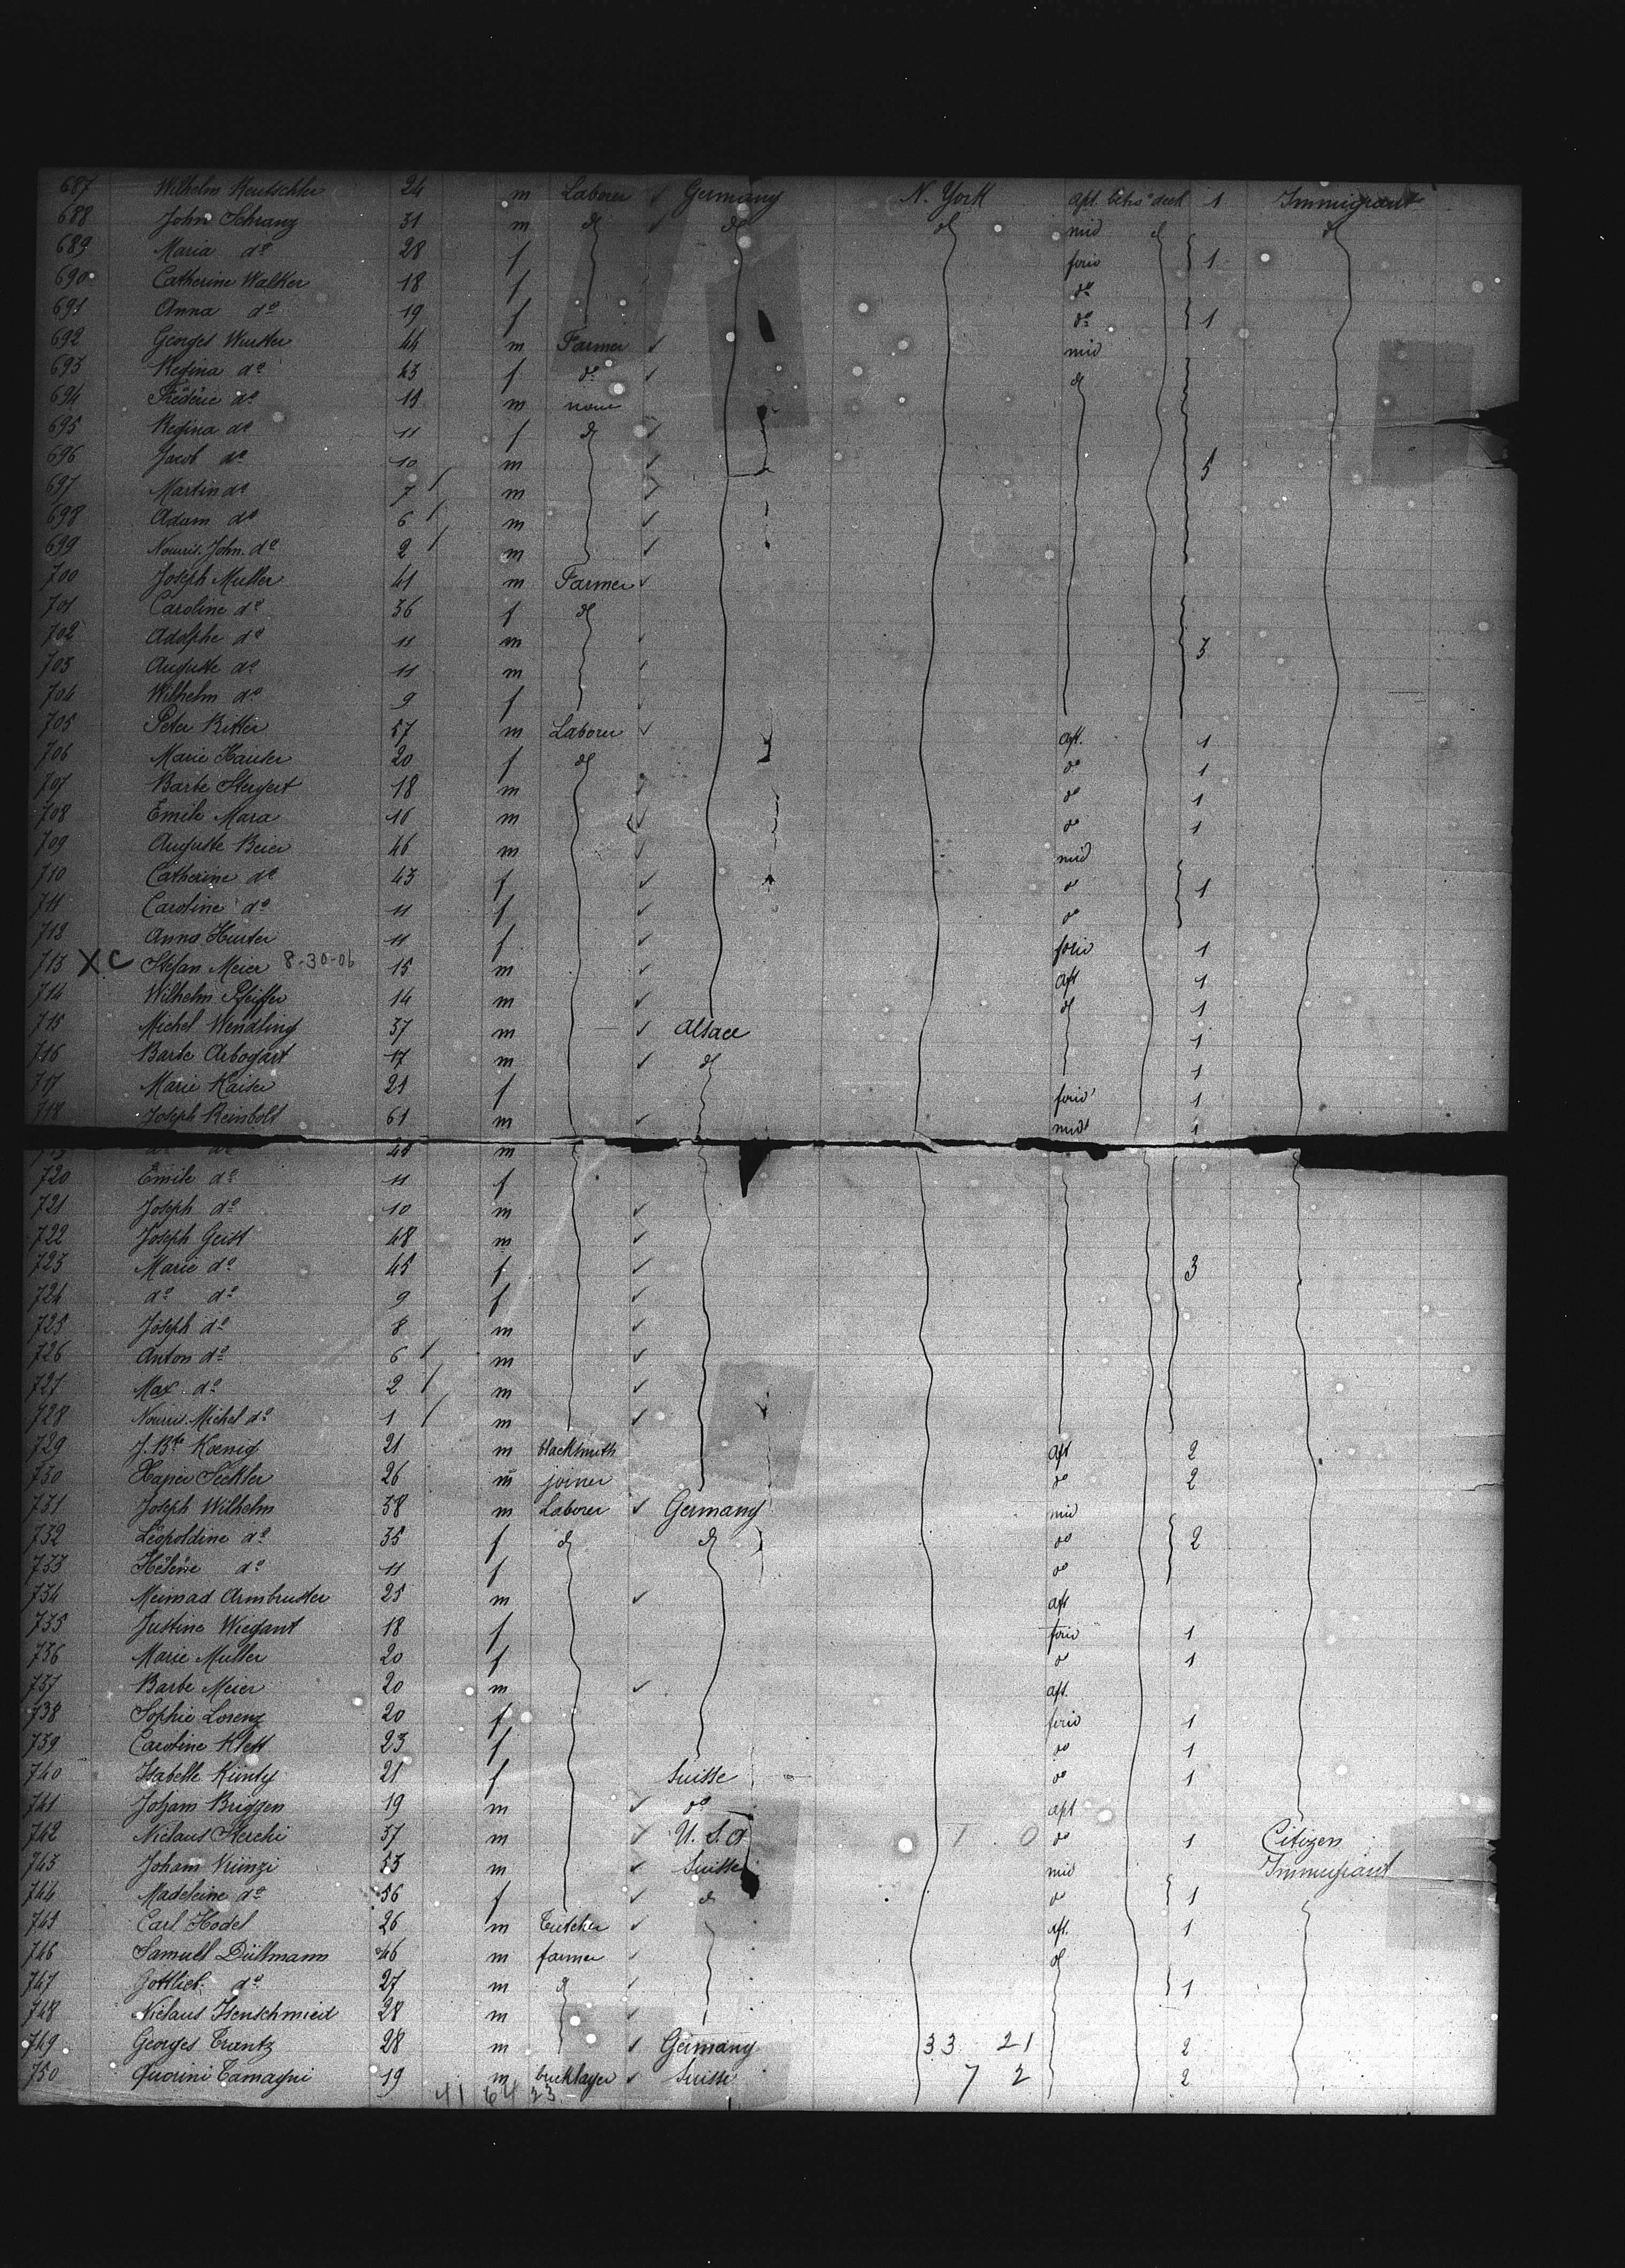 687 Wilhelm Keutschler 24 m Laborer ✓ Germany N. York aft. betw deck 1 Immigrant
688 John Schranz 31 m do ✓ do do mid do do
689 Maria do 28 f forw 1
690 Catherine Walker 18 f do
691 Anna do 19 f do 1
692 Georges Wurster 44 m Farmer ✓ mid
693 Regina do 43 f do ✓ do
694 Fréderic do 19 m none
695 Regina do 11 f do ✓
696 Jacob do 10 m ✓ 5
697 Martin do 7 / m ✓
698 Adam do 6 / m ✓
699 Nourris. John. do 2 / m ✓
700 Joseph Muller 41 m Farmer ✓
701 Caroline do 36 f do
702 Adolphe do 11 m ✓ 3
703 Auguste do 11 m ✓
704 Wilhelm do 9 f ✓
705 Peter Ritter 57 m Laborer ✓ aft. 1
706 Marie Hauser 20 f do do 1
707 Barbe Stergert 18 m ✓ do 1
708 Emile Mara 16 m ✓ do 1
709 Auguste Beier 46 m ✓ mid
710 Catherine do 43 f ✓ do 1
711 Caroline do 11 f ✓ do
712 Anna Huster 11 f ✓ forw 1
713 XC Stefan Meier 8-30-06 15 m ✓ aft 1
714 Wilhelm Pfeiffer 14 m ✓ do 1
715 Michel Wendling 37 m ✓ Alsace 1
716 Barbe Arbogast 17 m ✓ do 1
717 Marie Kaiser 21 f forw 1
718 Joseph Reinbolt 61 m ✓ mid 1
do do m
720 Emile do 11 f
721 Joseph do 10 m ✓
722 Joseph Geist 48 m ✓
723 Marie do 45 f ✓ 3
724 do do 9 f ✓
725 Joseph do 8 m ✓
726 Anton do 6 / m ✓
727 Max do 2 / m ✓
728 Nourris. Michel do 1 / m ✓
729 J. Bte Koenig 21 m blacksmith aft 2
730 Xapier Seckler 26 m joiner do 2
731 Joseph Wilhelm 38 m Laborer ✓ Germany mid
732 Léopoldine do 35 f do do do 2
733 Hélène do 11 f do
734 Meinrad Armbruster 25 m ✓ aft
735 Justine Wiegant 18 f forw 1
736 Marie Muller 20 f do 1
737 Barbe Meier 20 m ✓ aft.
738 Sophie Lorenz 20 f forw 1
739 Caroline Klett 23 f do 1
740 Isabelle Küntz 21 f Suisse do 1
741 Joham Briggen 19 m ✓ do aft
742 Niclaus Sterchi 37 m ✓ U. S. A 1 0 do 1 Citizen
743 Joham Künzi 53 m ✓ Suisse mid Immigrant
744 Madeleine do 56 f ✓ do do 1
745 Carl Hodel 26 m butcher ✓ aft. 1
746 Samuel Düllmann 46 m farmer ✓ do
747 Gottlieb. do 27 m do ✓ 1
748 Niclaus Isenschmied 28 m ✓
749 Georges Trantz 28 m ✓ Germany 33 21 2
750 Quorini Tamagni 19 m bricklayer ✓ Suisse 7 2 2
41 64 23